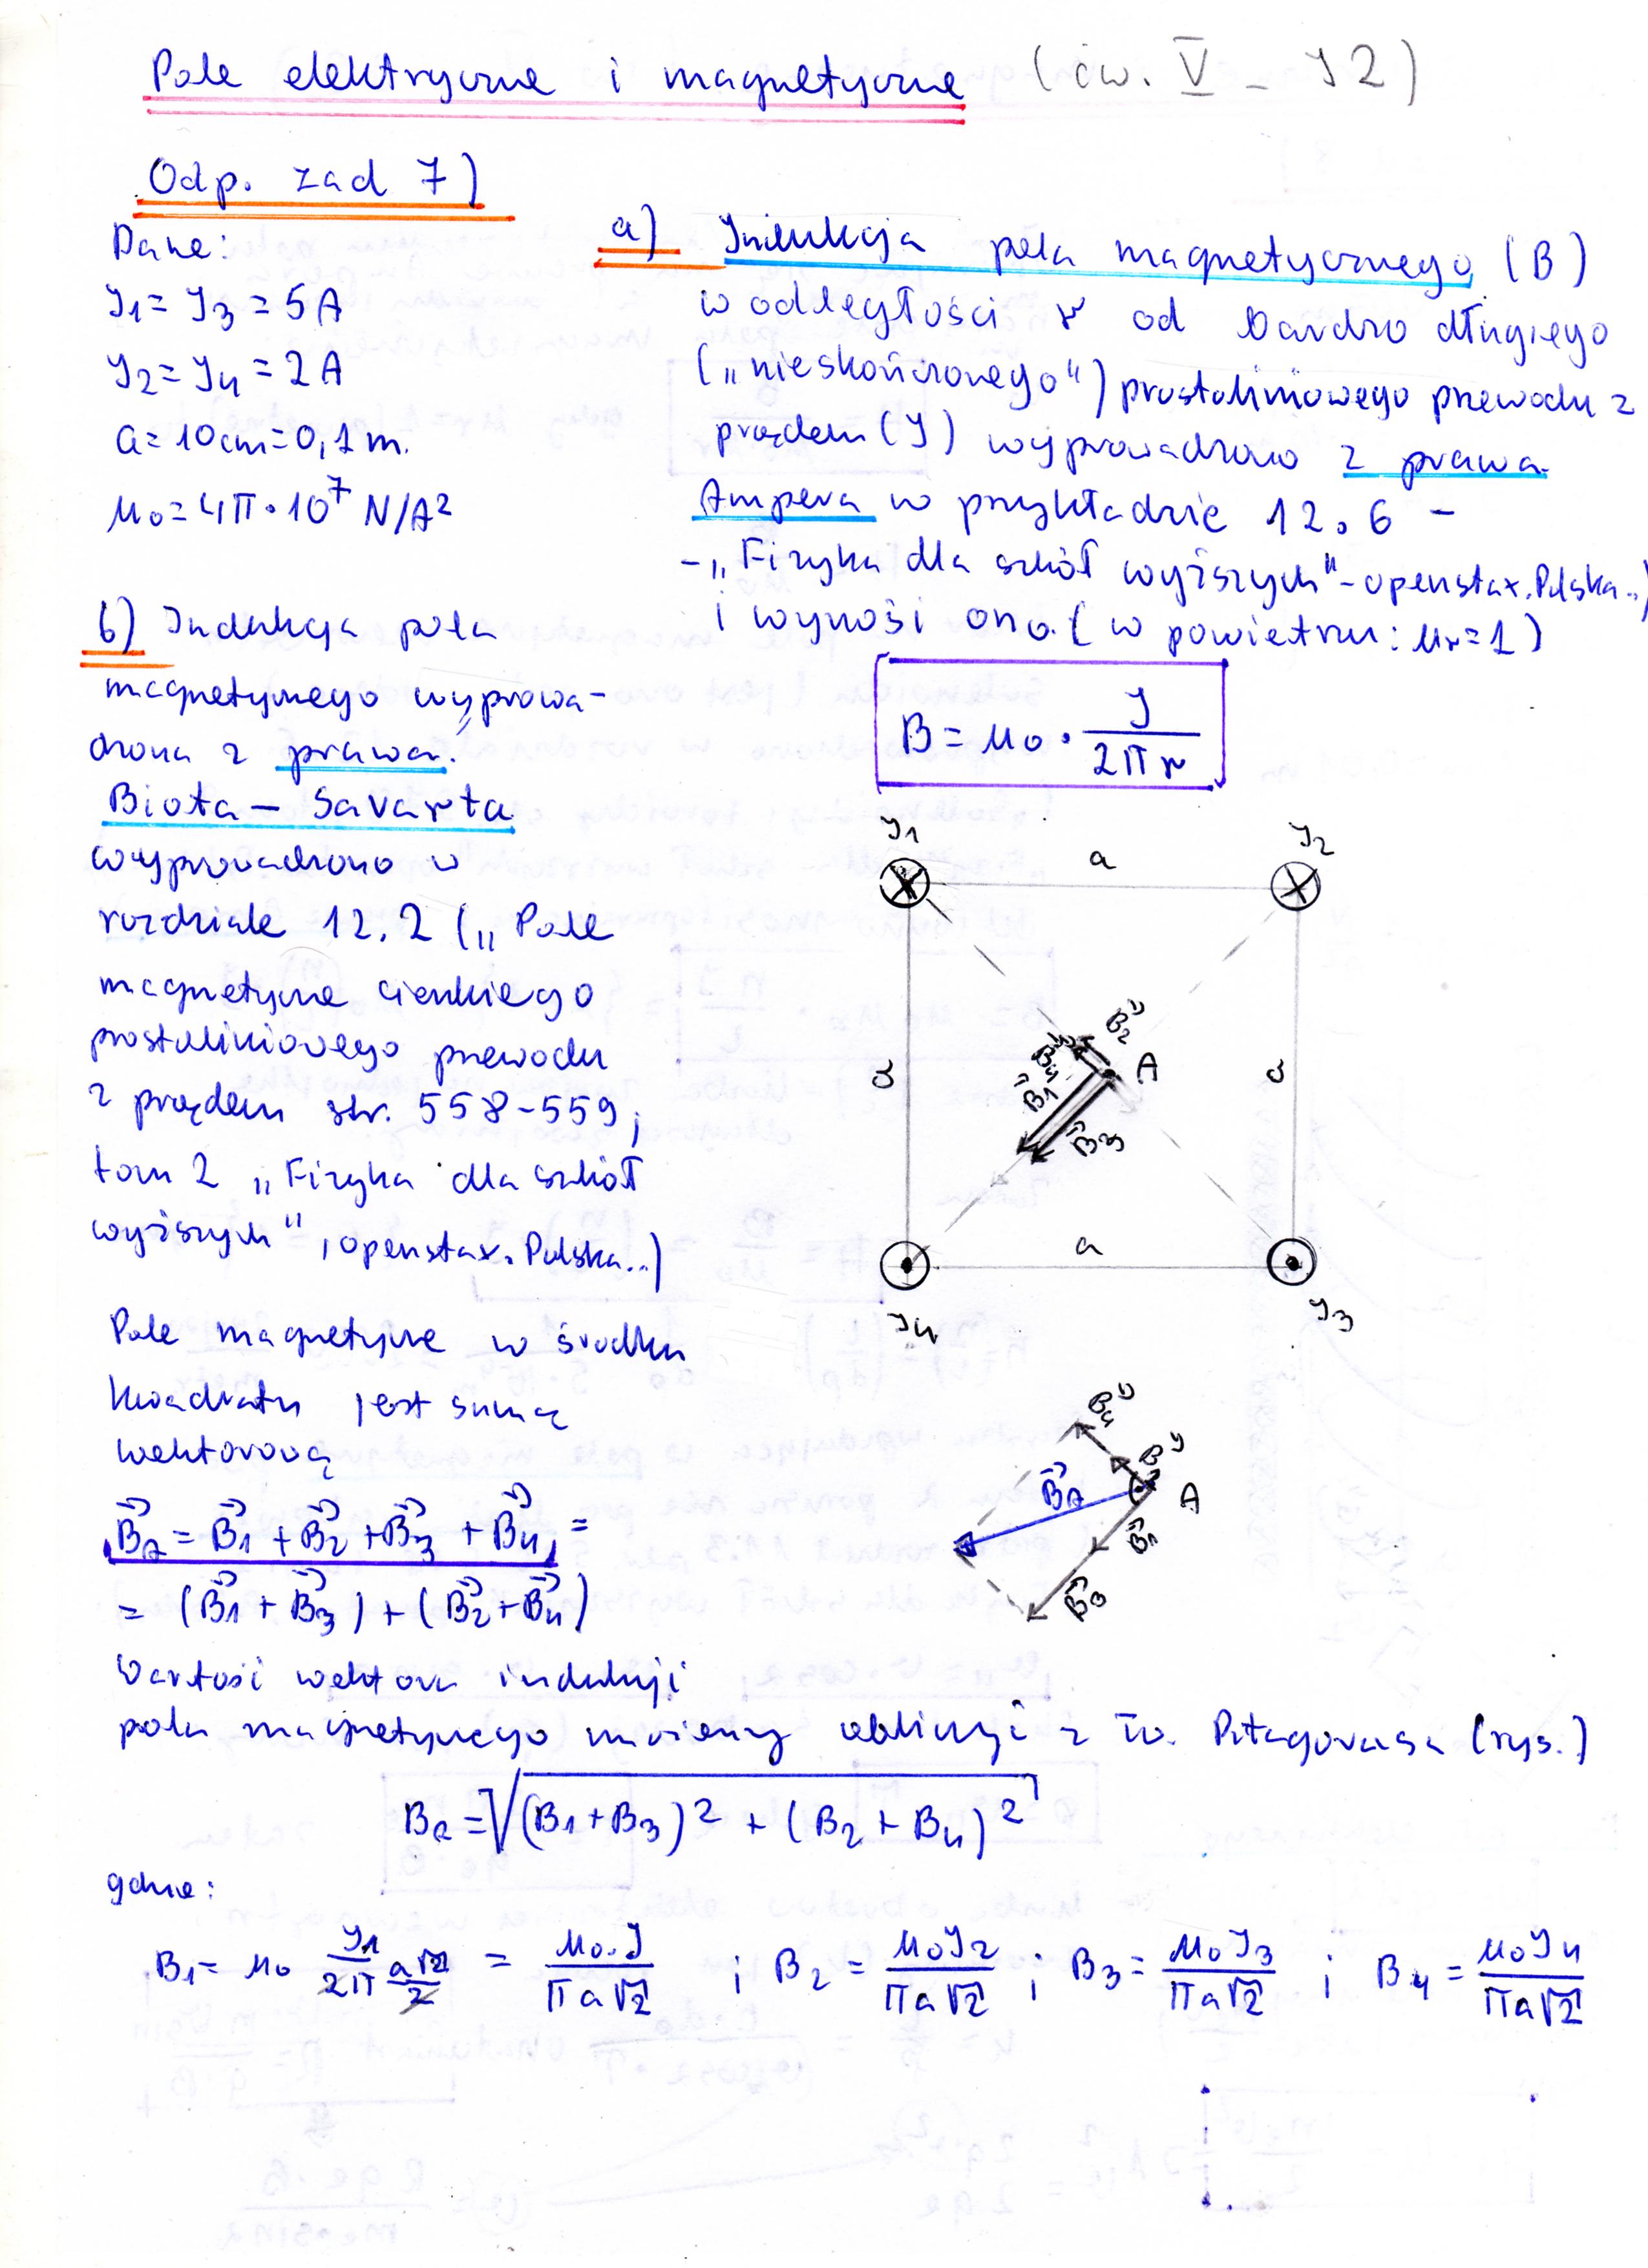 Pole elektryczne i magnetyczne (ćw. V - J2)
Odp. zad 7)
Dane:
J1 = J3 = 5A
J2 = J4 = 2A
a = 10cm = 0,1m.
μ0 = 4π·10^7 N/A²
a) Indukcja pola magnetycznego (B)
w odległości r od bardzo długiego
(„nieskończonego") prostoliniowego przewodu z
prądem (J) wyprowadzono z prawa
Ampera w przykładzie 12.6 -
- „Fizyka dla szkół wyższych" - openstax.Polska..)
i wynosi ono. (w powietrzu: μr=1)
B = μ0 · J / 2πr
b) Indukcja pola
magnetycznego wyprowa-
dzona z prawa.
Biota - Savarta
wyprowadzono w
rozdziale 12.2 („Pole
magnetyczne cienkiego
prostoliniowego przewodu
z prądem str. 558-559;
tom 2 „Fizyka dla szkół
wyższych", openstax.Polska..)
J1 a J2
a a
B2
B4 A
B1
B3
a
J4 J3
Pole magnetyczne w środku
kwadratu jest sumą
wektorową
B⃗A = B⃗1 + B⃗2 + B⃗3 + B⃗4 =
= (B⃗1 + B⃗3) + (B⃗2 + B⃗4)
B⃗4
B⃗A A
B⃗1
B⃗3
Wartość wektora indukcji
pola magnetycznego możemy obliczyć z tw. Pitagorasa (rys.)
Ba = √(B1+B3)² + (B2+B4)²
gdzie:
B1 = μ0 J1 / 2π a√2/2 = μ0·J / πa√2 ; B2 = μ0J2 / πa√2 ; B3 = μ0J3 / πa√2 ; B4 = μ0J4 / πa√2